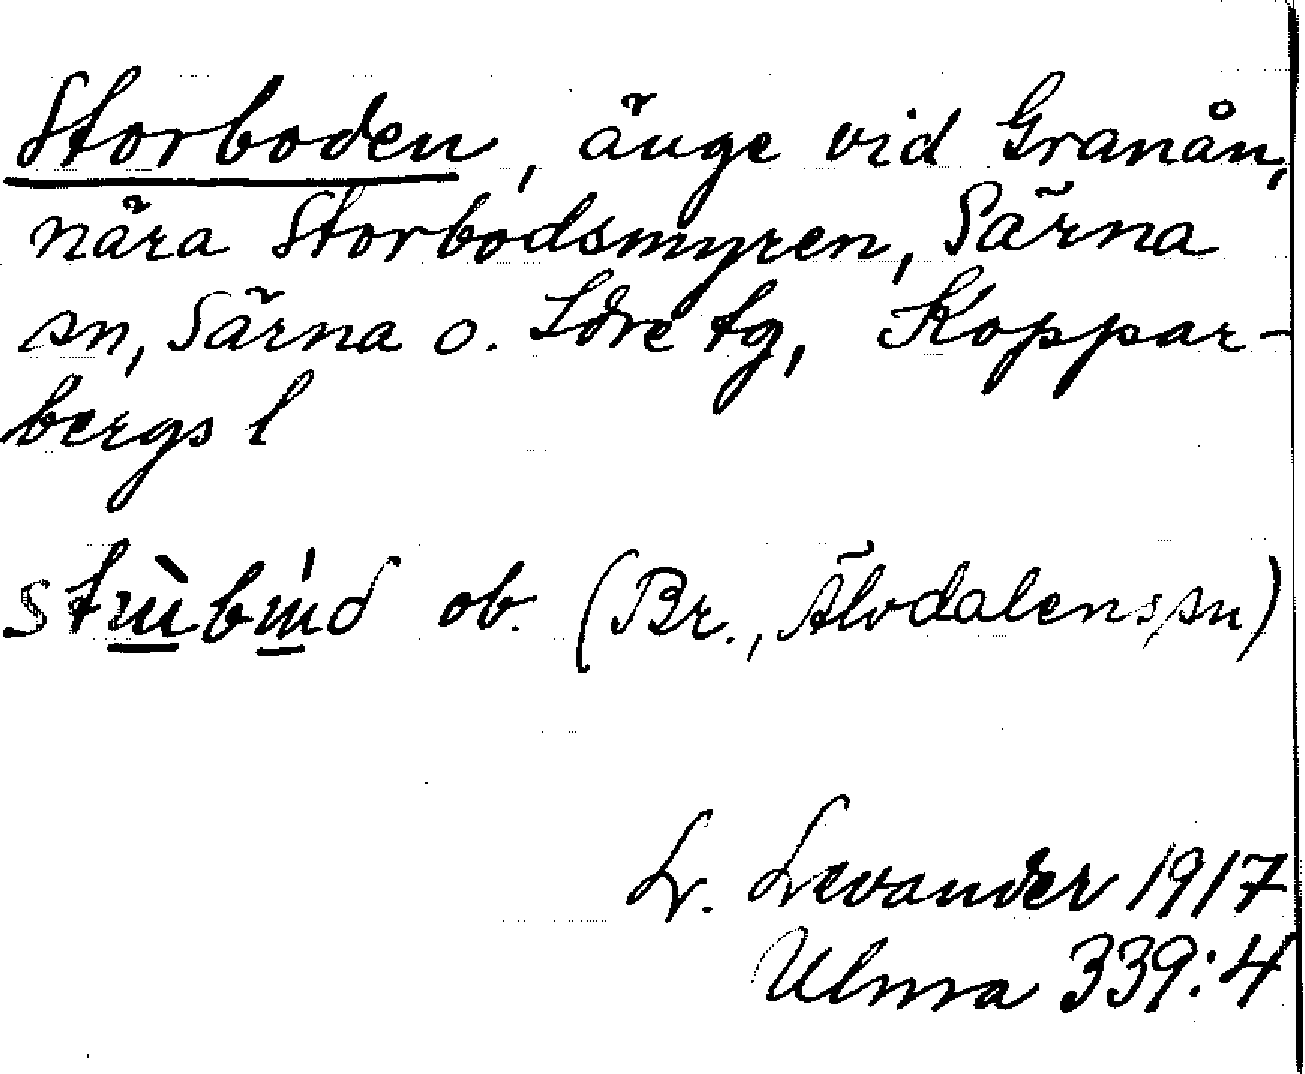 Storboden, änge vid Granån,
nära Storbodsmyren, Särna
sn, Särna o. Idre tg, Koppar-
bergs l
ob. (Br., Älvdalens sn)
L. Levander 1917
Ulma 339:4